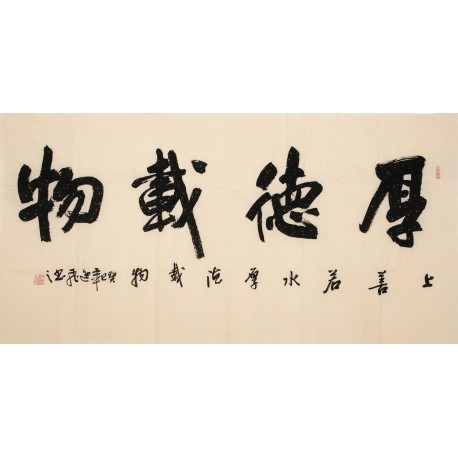 厚德載物
上善若水厚德載物
癸巳年